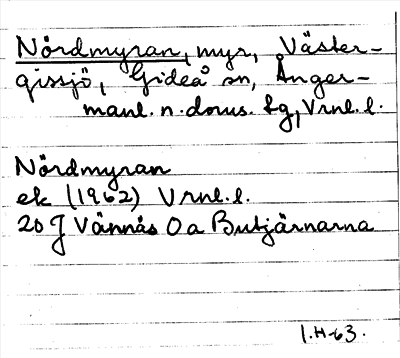 Nördmyran, myr, Väster-
gissjö, Gideå sn, Ånger-
manl. n. doms. fg, Vrnl. l.
Nördmyran
ek (1962) Vrnl. l.
20 J Vännäs 0 a Butjärnarna
1.H-63.